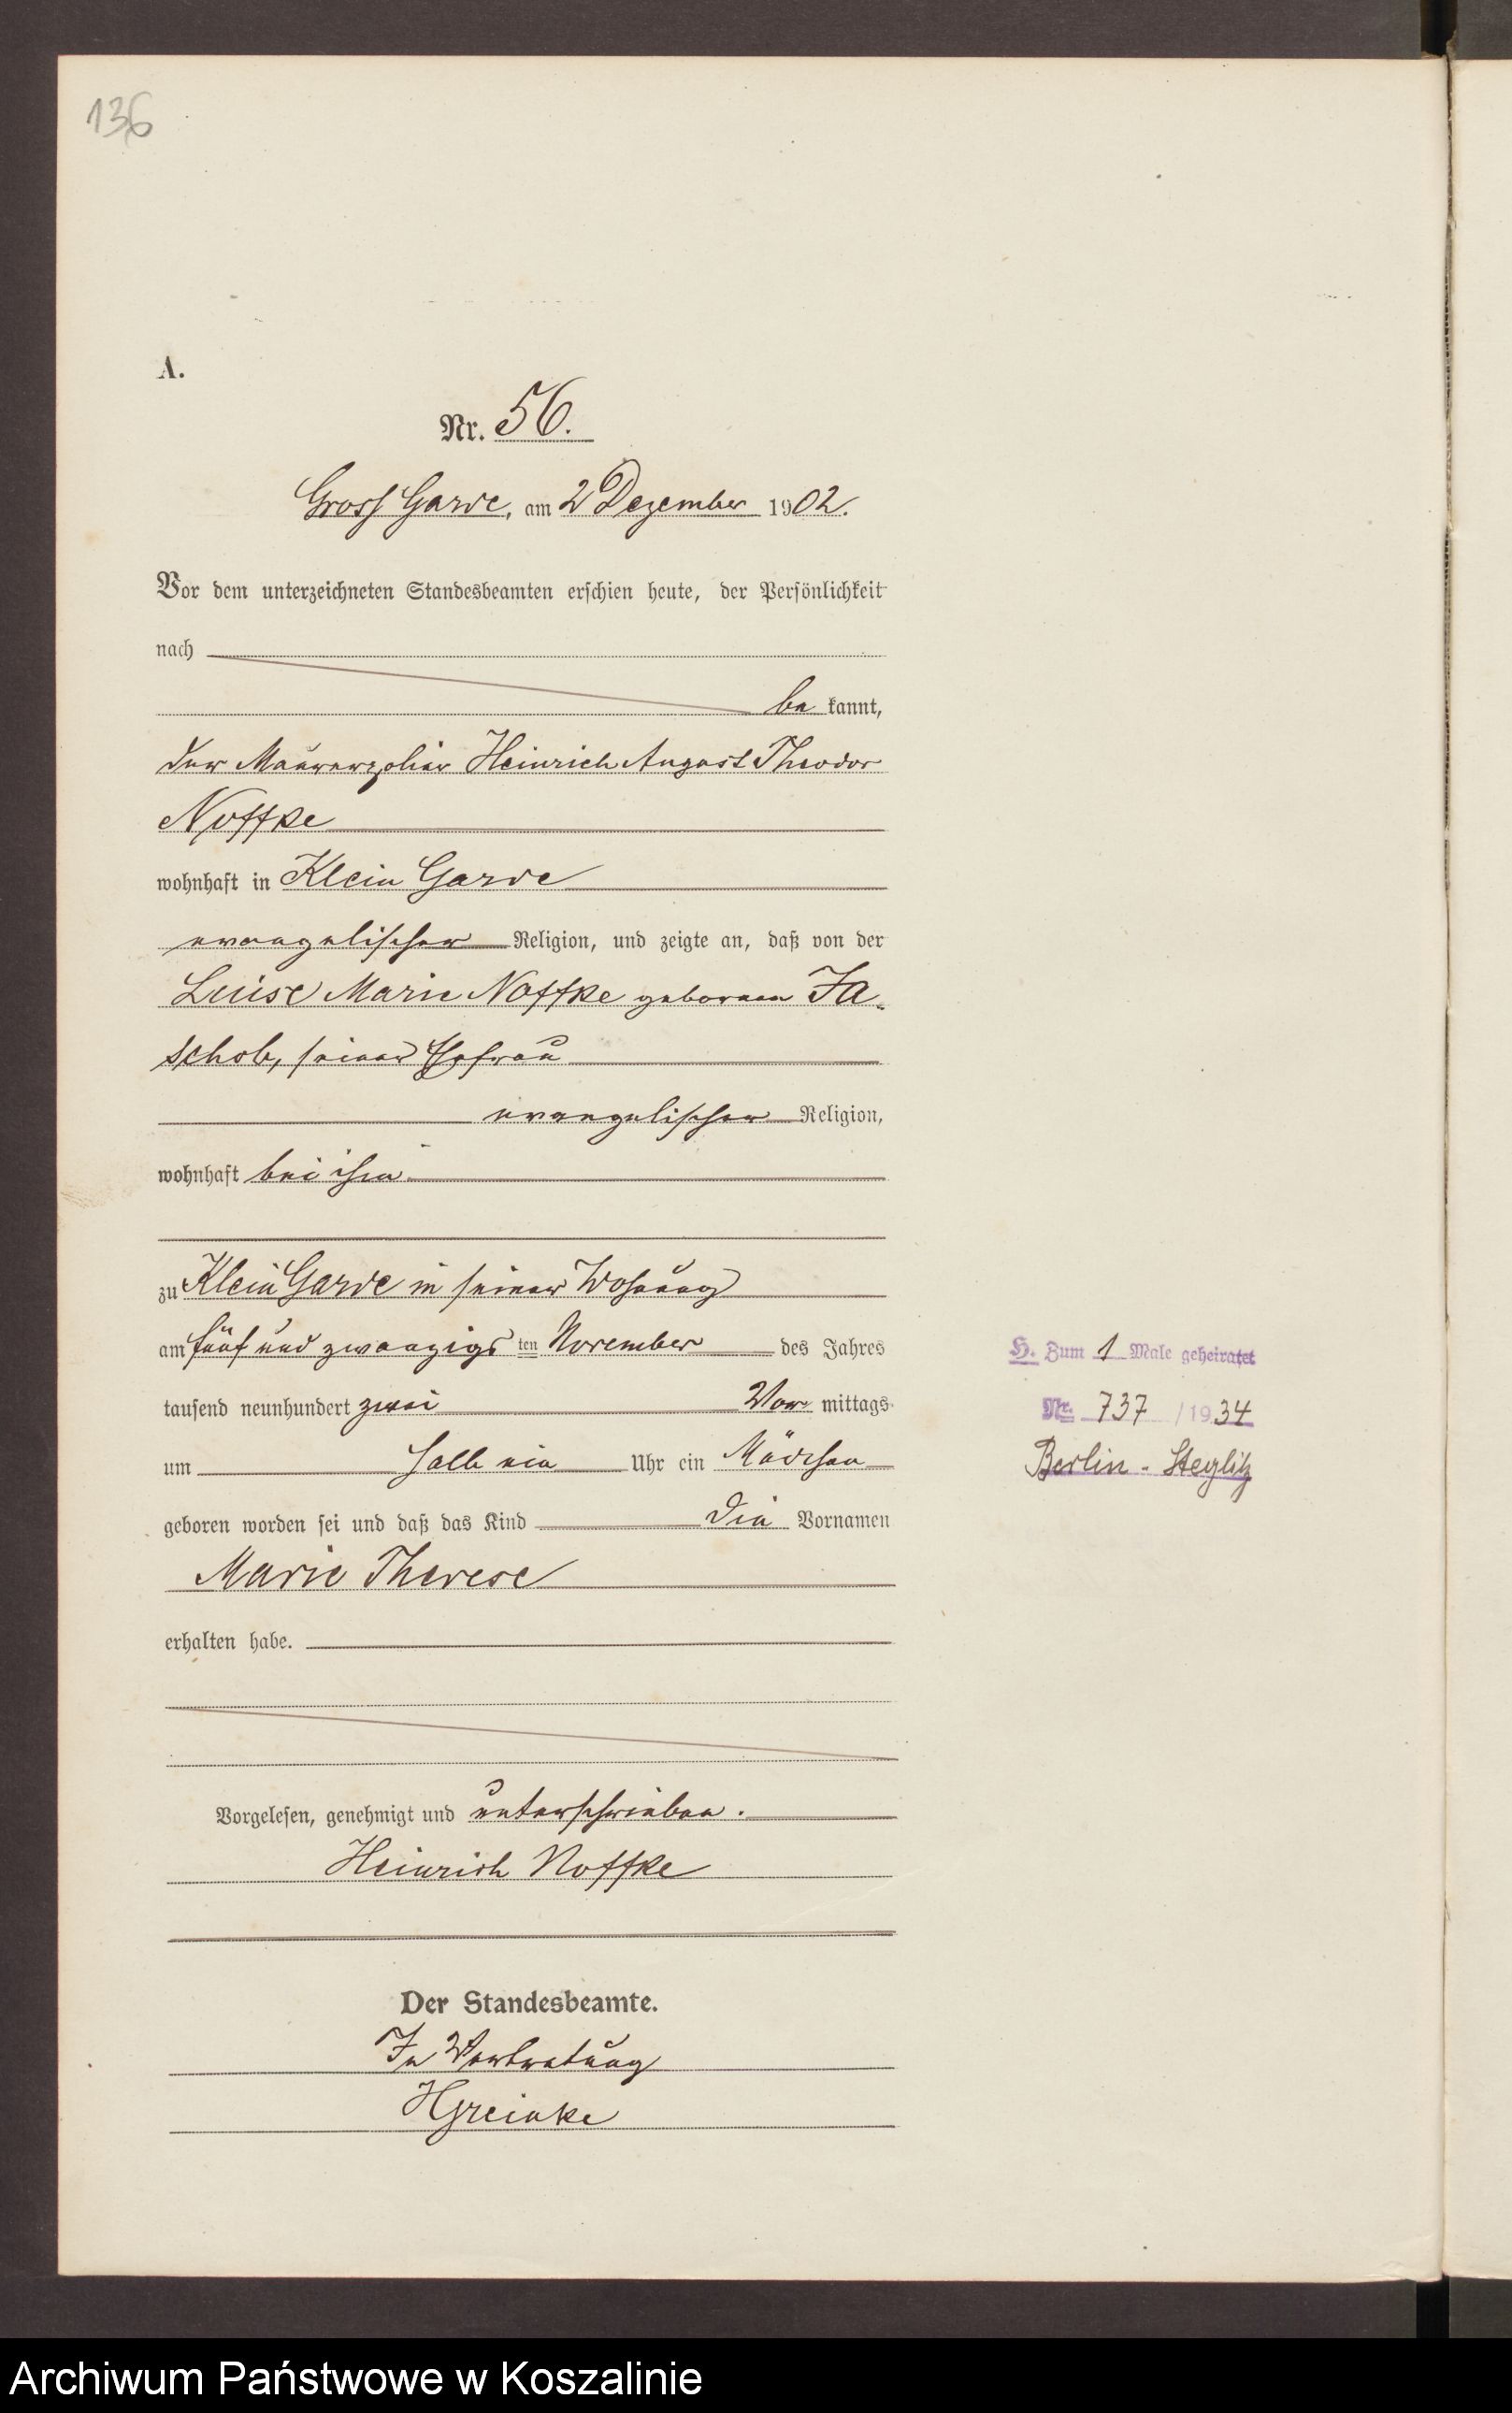 136
A.
Nr. 56.
Gross Garde, am 2 Dezember 1902.
Vor dem unterzeichneten Standesbeamten erschien heute, der Persönlichkeit
nach
be kannt,
der Maurerpolier Heinrich August Theodor
Noffke
wohnhaft in Klein Garde
evangelischer Religion, und zeigte an, daß von der
Luise Marie Noffke geborenen Ja-
schob, seiner Ehefrau
evangelischer Religion,
wohnhaft bei ihm
zu Klein Garde in seiner Wohnung
am fünf und zwanzigs ten November des Jahres
tausend neunhundert zwei Vor mittags
um halb ein Uhr ein Mädchen
geboren worden sei und daß das Kind die Vornamen
Marie Therese
erhalten habe.
Vorgelesen, genehmigt und unterschrieben.
Heinrich Noffke
Der Standesbeamte.
In Vertretung
HGreinke
H. Zum 1 Male geheiratet
Nr. 737 / 1934
Berlin - Steglitz
Archiwum Państwowe w Koszalinie